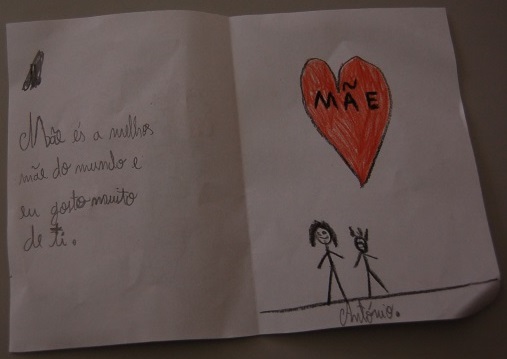 Mãe és a melhos
mãe do mundo e
eu gosto muito
de ti.
MÃE
António.